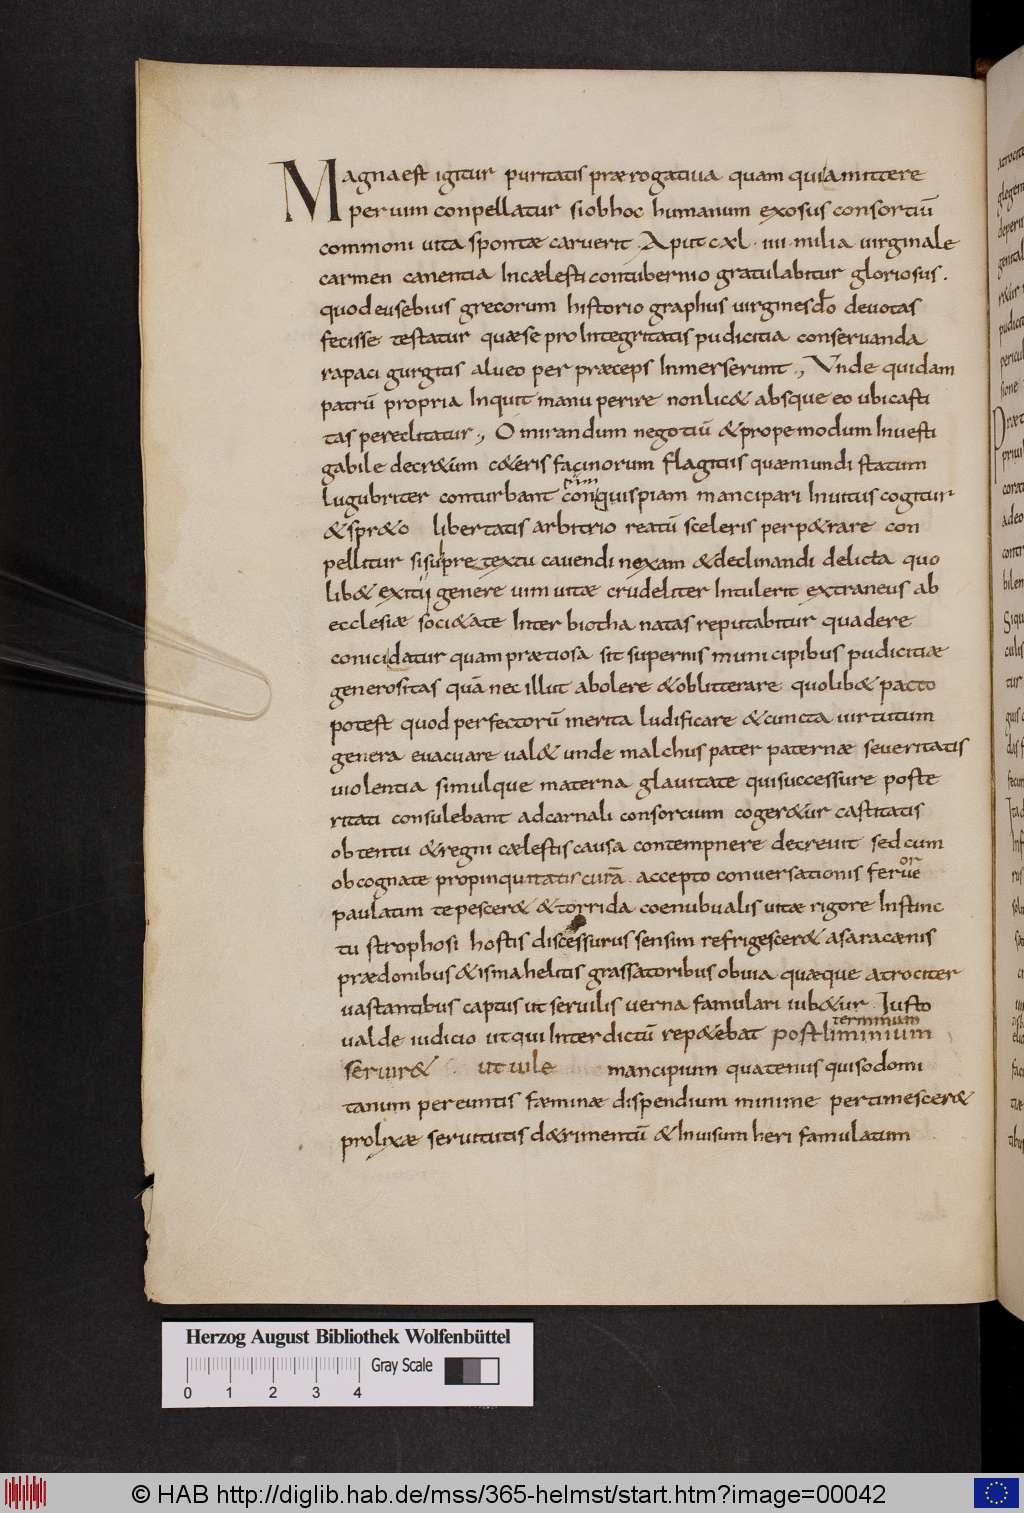 Magna est igitur puritatis prærogatiua quam qui amittere
per uim conpellatur si ob hoc humanum exosus consortiū
commoni uita spontæ caruerit. Aput cxl. iiii. milia uirginale
carmen canentia In cælesti contubernio gratulabitur gloriosus.
quod eusebius grecorum historio graphus uirgines dō deuotas
fecisse testatur quæse pro Integritatis pudicitia conseruanda
rapaci gurgitis alueo per præceps Inmerserunt., Vnde quidam
patrū propria Inquit manu perire non lic& absque eo ubi casti
tas pereclitatur., O mirandum negotiū & prope modum Inuesti
gabile decr&um c&eris facinorum flagitiis quæ mundi statum
lugubriter conturbant con quispiam mancipari Inuitus cogitur
& spr&o libertatis arbitrio reatū sceleris perp&rare con
pellitur si supre textu cauendi nexam & declinandi delicta quo
lib& exitii genere uim uitæ crudeliter Intulerit extraneus ab
ecclesiæ soci&ate Inter biotha natas reputabitur qua dere
conicidatur quam prætiosa sit supernis municipibus pudicitiæ
generositas quā nec illut abolere & oblitterare quolib& pacto
potest quod perfectorū merita ludificare & cuncta uirtutum
genera euacuare ual& unde malchus pater paternæ seueritatis
uiolentia simulque materna glauitate qui successure poste
ritati consulebant ad carnali consortium coger&ur castitatis
obtentu & regni cælestis causa contempnere decreuit sed cum
ob cognate propinquitatis curā accepto conuersationis feruore
paulatim tepescer& & torrida coenubualis uitæ rigore Instinc
tu strophosi hostis discessurus sensim refrigescer& a saracænis
prædonibus & ismahelitis grassatoribus obuia quæque atrociter
uastantibus captus ut seruilis uerna famulari iub&ur. Iusto
ualde iudicio ut qui Interdictū rep&ebat postliminium
terminum
seruir& ut uile mancipium quatenus quisodomi
tanum pereuntis fæminæ dispendium minime pertimescer&
prolixæ seruitutis d&rimentū & Inuisum heri famulatum
Herzog August Bibliothek Wolfenbüttel
Gray Scale
0 1 2 3 4
© HAB http://diglib.hab.de/mss/365-helmst/start.htm?image=00042